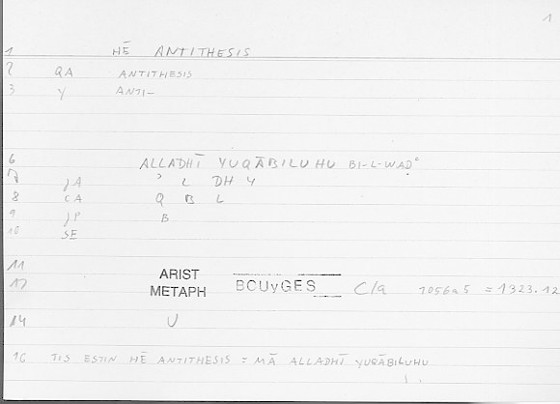 1
1 HĒ ANTITHESIS
2 QA ANTITHESIS
3 Y ANTI–
6 ALLADHĪ YUQĀBILUHU BI-L-WAḌ°
7 JA ʾ L DH Y
8 CA Q B L
9 JP B
10 SE
11 ARIST
12 METAPH BOUYGES C/a 1056a5 = 1323.12
14 U
16 TIS ESTIN HĒ ANTITHESIS = MĀ ALLADHĪ YUQĀBILUHU